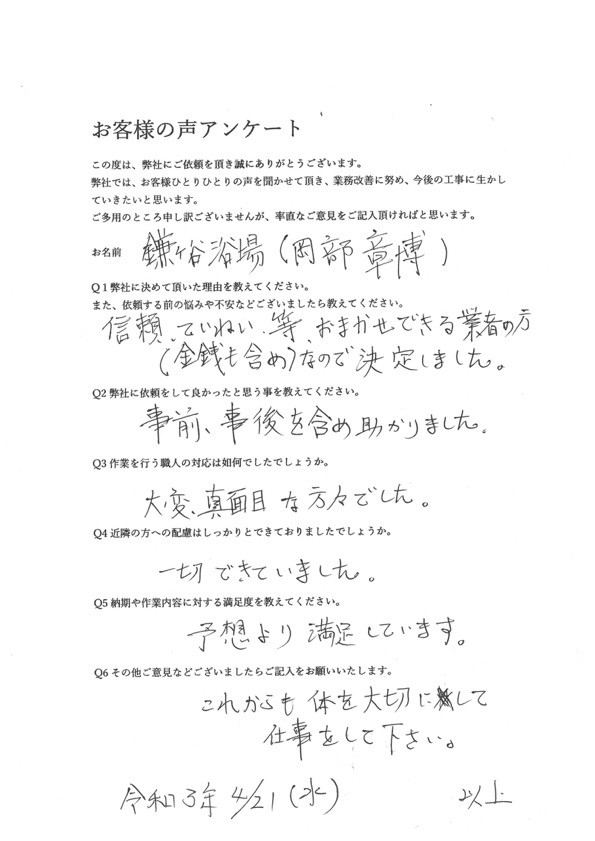 お客様の声アンケート
この度は、弊社にご依頼を頂き誠にありがとうございます。
弊社では、お客様ひとりひとりの声を聞かせて頂き、業務改善に努め、今後の工事に生かし
ていきたいと思います。
ご多用のところ申し訳ございませんが、率直なご意見をご記入頂ければと思います。
お名前 鎌ヶ谷浴場(岡部章博)
Q1弊社に決めて頂いた理由を教えてください。
また、依頼する前の悩みや不安などございましたら教えてください。
信頼、ていねい、等、おまかせできる業者の方
(金銭も含め)なので決定しました。
Q2弊社に依頼をして良かったと思う事を教えてください。
事前、事後を含め助かりました。
Q3作業を行う職人の対応は如何でしたでしょうか。
大変、真面目な方々でした。
Q4近隣の方への配慮はしっかりとできておりましたでしょうか。
一切できていました。
Q5納期や作業内容に対する満足度を教えてください。
予想より満足しています。
Q6その他ご意見などございましたらご記入をお願いいたします。
これからも体を大切にして
仕事をして下さい。
令和3年4/21(水) 以上